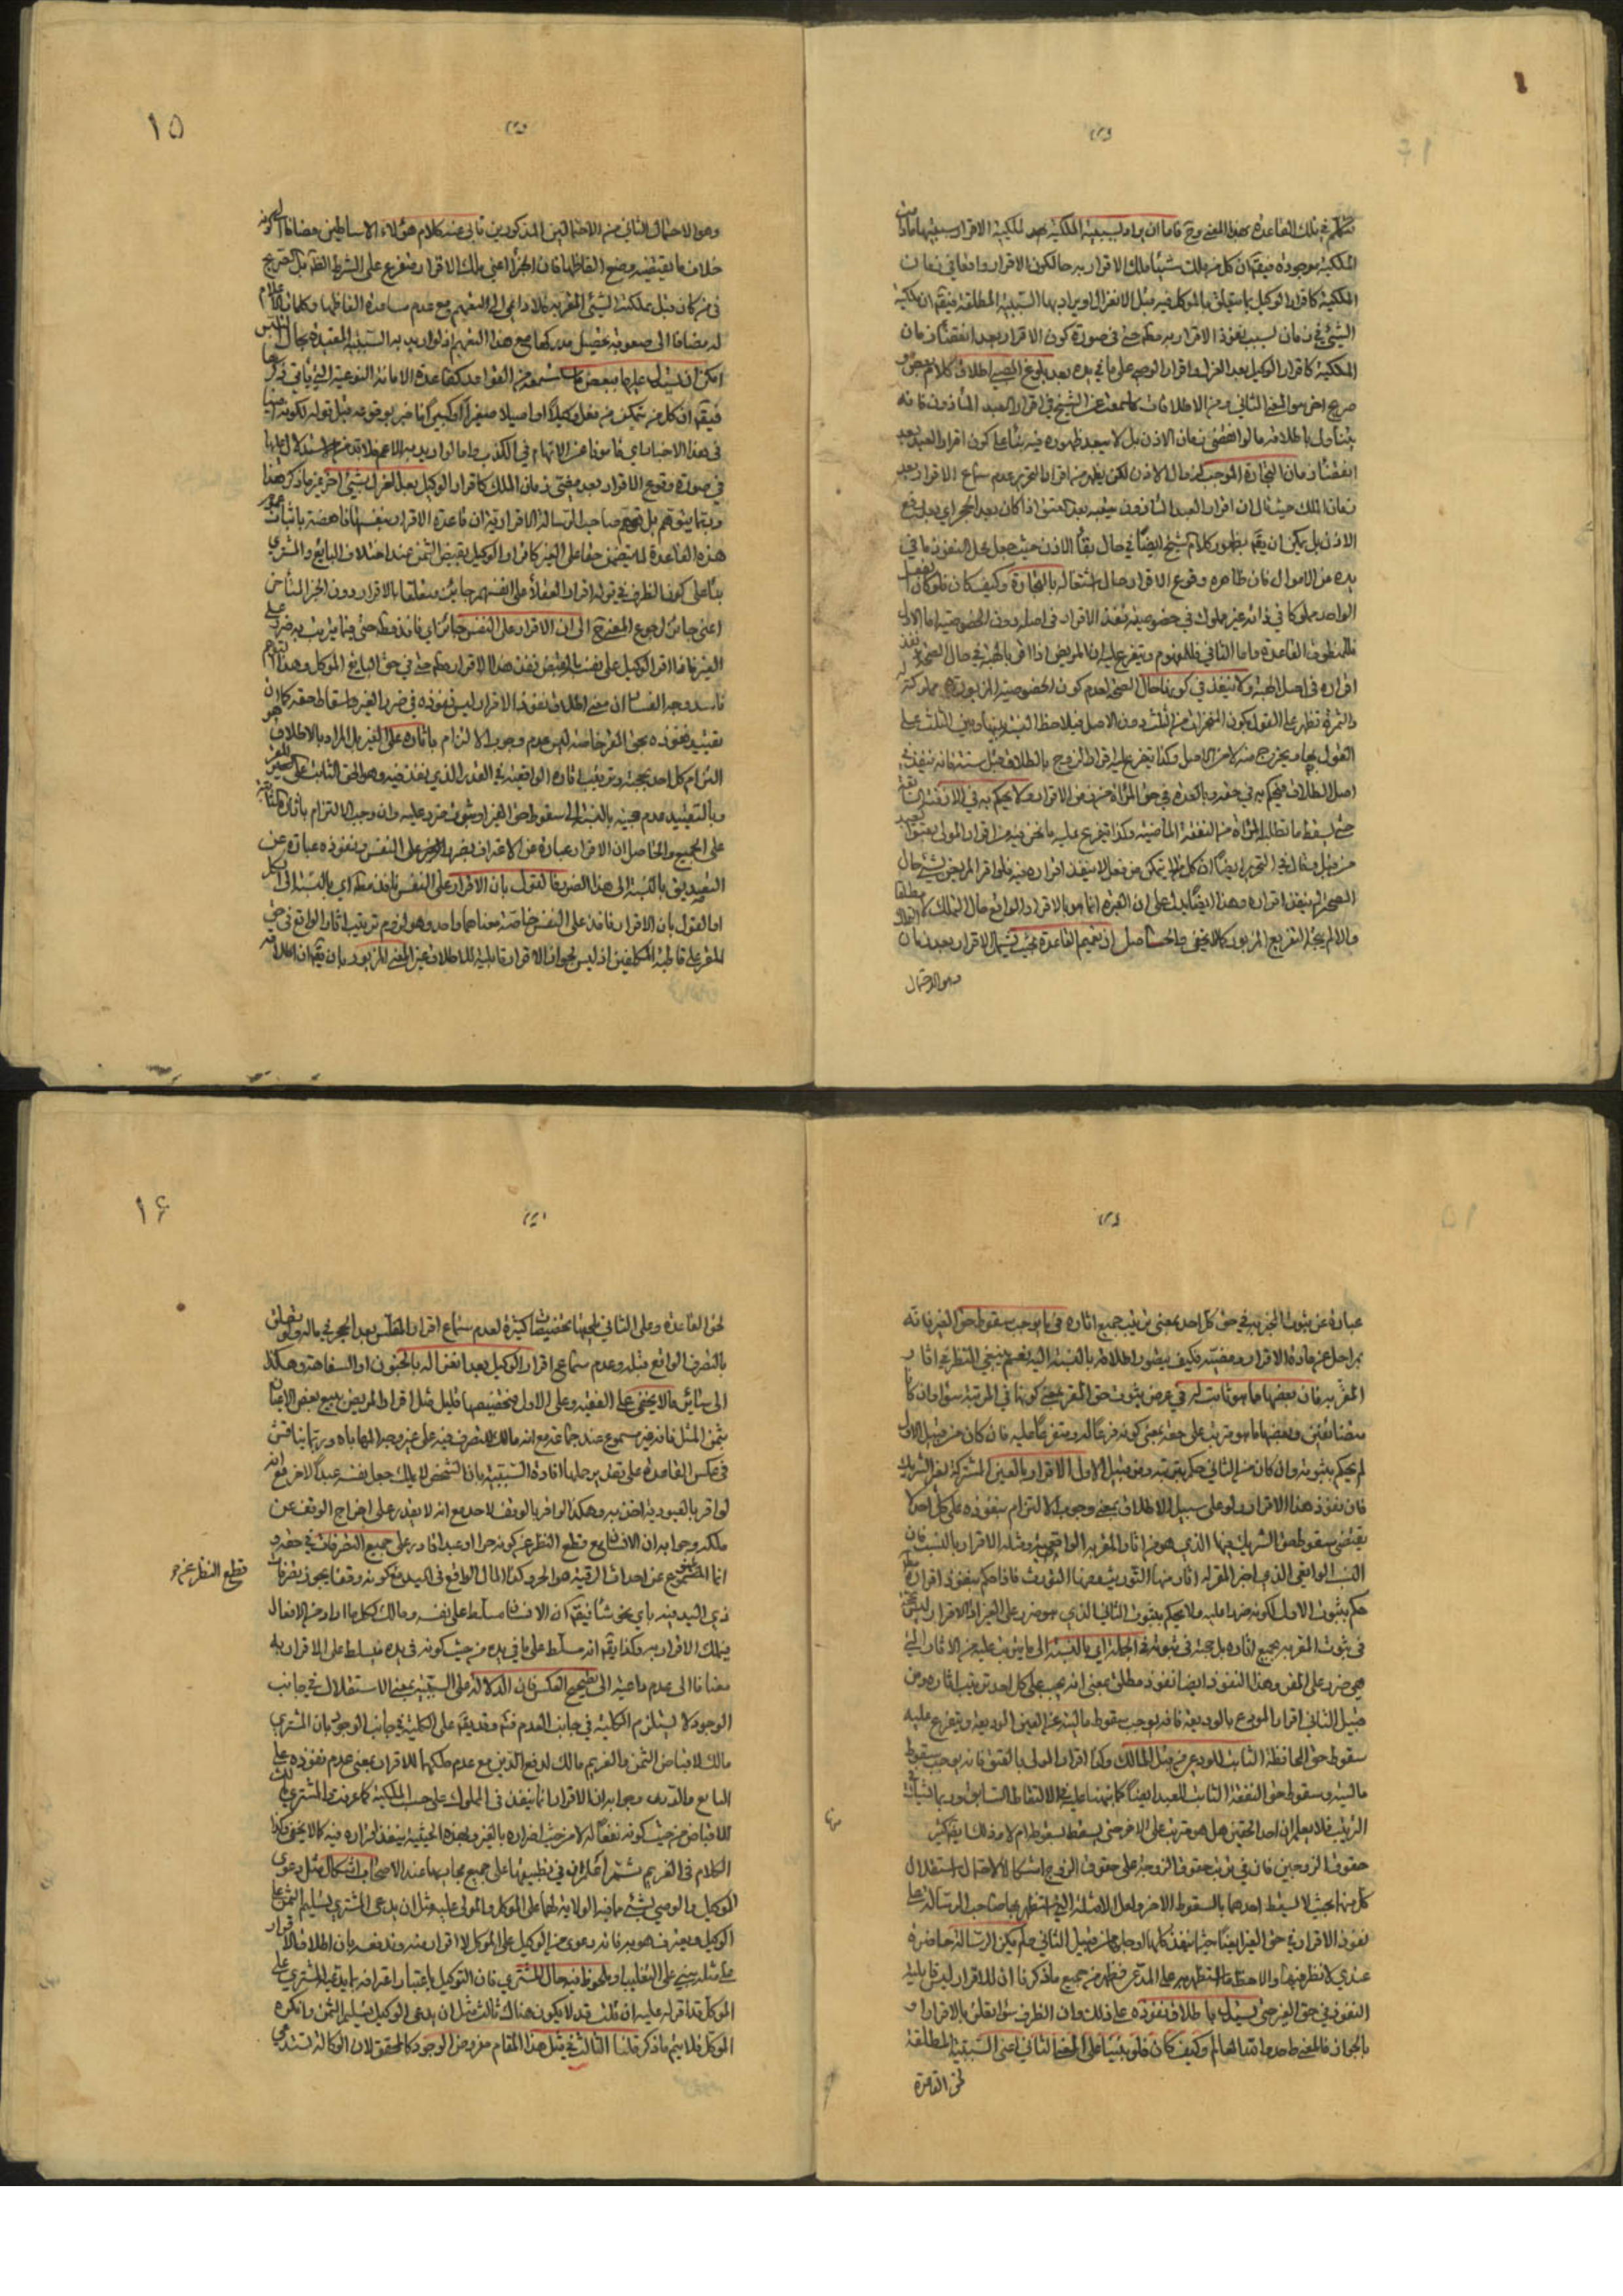 نتكلم في تلك القاعدة بهذا المعنى وح فاما ان يراد بسببية الملكية لملكية الاقرار سببيتها مادامت
الملكية موجودة فيقم ان كل من ملك شيئا ملك الاقرار به حالكون الاقرار واقعا في زمان
الملكية كاقرار الوكيل بما يتعلق بالموكل فيه قبل الانعزال او يراد بها السببية المطلقة فيقم ان ملكية
الشيء في زمان لسبب لنفوذ الاقرار به مطم حتى في صورة كون الاقرار بعد انقضاء زمان
الملكية كاقرار الوكيل بعد العزل واقرار الوصي على ما في يده بعد بلوغ الصبي اطلاق كلام بعض و
صريح اخر هو المعنى الثاني ومن الاطلاقات ما سمعت عن الشيخ في اقرار العبد المأذون فانه
يتناول باطلاقه ما لو انقضى زمان الاذن بل لا يبعد ظهوره فيه بناء على كون اقرار العبد بعد
انقضاء زمان التجارة الموجب لزوال الاذن لكن يظهر من اقرار التحرير عدم سماع الاقرار بعد
زمان الملك
الاذن بل يمكن ان يقم بظهور كلام الشيخ ايضا في حال بقاء الاذن حيث جعل محل النفوذ ما في
يده من الاموال فان ظاهره وقوع الاقرار حال اشتغاله بالتجارة وكيف كان فلو كان الفعل
الواحد مملوكا في ذاته غير مملوك في خصوصيته نفذ الاقرار في اصله دون الخصوصية اما الاول
فللمنطوق القاعدة واما الثاني فللمفهوم ويتفرع عليه ان المريض اذا اقر بالهبة في حال الصحة نفذ
اقراره في اصل الهبة ولا ينفذ في كونها حال الصحة لعدم كون الخصوصية المزبورة مملوكة له
والثمرة تظهر على القول بكون المنجزات من الثلث دون الاصل فيلاحظ النسبة بينها وبين الثلث على
القول بها ويخرج من الاصل وكذا يتفرع عليه اقرار الزوج بالطلاق قبل سنة فانه ينفذ في
اصل الطلاق فيحكم به في حقه وبالعدة في حق المرأة من زمن الاقرار ولا يحكم به في الازمنة السابقة
حتى يسقط ما تطلبه المرأة من النفقة الماضية وكذا يتفرع عليه ما نحن فيه من اقرار المولى بعتق العبد
من قبل
الصحة لم ينفذ اقراره وهذا ايضا يدل على ان العبرة انما هو بالاقرار الواقع حال الملك لا مطلقا
والا لم يتجه التفريع المزبور كما لا يخفى والحاصل ان تعميم القاعدة بحيث يشمل الاقرار بعد زمان
وهو الاحتمال
١٥
وهو الاحتمال الثاني من الاحتمالين المذكورين تأبى عنه كلام هؤلاء الاساطين مضافا الى كونه
خلاف ما يقتضيه وضع الفاظها فان الجزاء اعني ملك الاقرار متفرع على الشرط الظ بل الصريح
في من كان قبل مملكية الشيء المقر به فلا داعي الى التعميم مع عدم مساعدة الفاظها وكلمات الاعلام
له مضافا الى صعوبة تحصيل مدركها مع هذا التعميم اذ لو اريد به السببية المقيدة بحال التلبس
امكن ان يستدل عليها ببعض ما ستسمعه من القواعد كقاعدة الامانة النوعية التي يأتي ذكرها
فيقم ان كل من تمكن من فعل وكيلا او اصيلا صغيرا او كبيرا فاخبر بوقوعه قبل قوله لكونه امينا
في هذا الاخبار اي مامونا من الاتهام في الكذب واما لو اريد به الاعم فلا بد من الاستدلال عليها
في صورة وقوع الاقرار بعد مضي زمان الملك كاقرار الوكيل بعد العزل بشيء اخر غير ما ذكر هذا
وربما يتوهم بل توهم صاحب الرسالة الاقرارية ان قاعدة الاقرار بنفسها ناهضة باثبات عموم
هذه القاعدة لما يتضمن حقا على الغير كاقرار الوكيل بقبض الثمن عند اختلاف البايع والمشتري
بناء على كون الظرف في قوله اقرار العقلاء على انفسهم جايز متعلقا بالاقرار دون الجزاء المتأخر
اعني جايز لرجوع المعنى ح الى ان الاقرار على النفس جايز اي نافذ مطم حتى فيما يترتب به ضرر على
الغير فاذا اقر الوكيل على نفسه بالقبض نفذ هذا الاقرار مطم حتى في حق البايع الموكل وهذا التوهم
فاسد وجه الفساد ان معنى اطلاق نفوذ الاقرار ليس نفوذه في ضرر الغير واسقاط حقه كما ان
تقييد نفوذه بحق المقر خاصة ليس عدم وجوب الالتزام باثاره على الغير بل المراد بالاطلاق هو
التزام كل احد بحجيته وترتيب اثاره الواقعية في القدر الذي نفذ فيه وهو الحق الثابت على المقر للغير
وبالتقييد عدم حجيته بالنسبة الى سقوط حق الغير او ثبوت ضرر عليه وان وجب الالتزام باثاره
على الجميع والحاصل ان الاقرار عبارة عن الاعتراف بضرر على النفس ونفوذه عبارة عن
التصديق بالنسبة الى هذا الضرر فالقول بان الاقرار على النفس نافذ مطم اي بالنسبة الى كل
او القول بان الاقرار نافذ على النفس خاصة معناهما واحد وهو لزوم ترتيب اثار الواقع في حق
المقر على قاطبة المكلفين اذ ليس لجواز الاقرار قابلية للاطلاق غير المعنى المزبور بان يقم ان اطلاقه
عبارة عن ثبوت المخبر به في حق كل احد بمعنى ترتيب جميع اثاره فيما يوجب سقوط حق الغير فانه
بمراحل عن مادة الاقرار ومقتضيه فكيف يتصور اطلاقه بالنسبة اليه نعم ينبغي النظر في اثار
المقر به فان بعضها ما هو ثابت له في عرض ثبوت حق المقر بمعنى كونها في المرتبة سواء وان كانا
متضائفين وبعضها ما هو مترتب على حقه بمعنى كونه فرعا له ومتفرعا عليه فان كان من قبيل الاول
لم يحكم بثبوته وان كان من الثاني حكم بثبوته ومن قبيل الاول الاقرار بالعين المشتركة لغير الشريك
فان نفوذ هذا الاقرار ولو على سبيل الاطلاق بمعنى وجوب الالتزام بنفوذه على كل احد لا
يقتضي سقوط حق الشريك عنها الذي هو من اثار المقر به الواقعية ومثله الاقرار بالنسب فان
النسب الواقعي الذي اخبر المقر له اثار منها التوريث ومنها التورث فاذا حكم بنفوذ اقراره مطم
حكم بثبوت الاول لكونه ضررا عليه ولا يحكم بثبوت الثاني الذي هو ضرر على الغير اذ الاقرار ليس حجة
في ثبوت المقر به بجميع اثاره بل حجة في ثبوته في الجملة اي بالنسبة الى ما يترتب عليه من الاثار التي
هي ضرر على المقر وهذا النفوذ ايضا نفوذ مطلق بمعنى انه يجب على كل احد ترتيب اثاره ومن
قبيل الثاني اقرار المودع بالوديعة فانه يوجب سقوط مالكيته عن العين المودعة ويتفرع عليه
سقوط حق المحافظة الثابت للودعي من قبل المالك وكذا اقرار المولى بالعتق فانه يوجب سقوط
ماليته وسقوط حق النفقة الثابت للعبد ايضا كما نبهنا عليه في الالتقاط السابق وربما يشتبه في
الترتيب فلا يعلم ان احد الحقين هل هو مترتب على الاخر حتى يسقط بسقوطه ام لا وذلك يقم كثير
حقوق الزوجين فان في ترتب حقوق الزوجة على حقوق الزوج اشكالا لاحتمال استقلال
كل منهما بحيث لا يسقط احدهما بالسقوط الاخر ولعل الامثلة التي استظهر بها صاحب الرسالة على
نفوذ الاقرار في حق الغير ايضا حيث انفذ كلها او جلها من قبيل الثاني ولم يكن الرسالة حاضرة
عندي لانظر فيها والاحظ ما استظهر به على المدعى فظهر من جميع ما ذكرنا ان للاقرار ليس قابلية
النفوذ في حق الغير حتى يستدل باطلاق نفوذه على ذلك وان الظرف سواء تعلق بالاقرار او
بالجواز فالمعنى واحد وكيف كان فلو بنينا على المعنى الثاني اعني السببية المطلقة
لحق القاعدة
١۶
لحق القاعدة وعلى الثاني يلحقها تخصيصات كثيرة لعدم سماع اقرار المفلس بعد الحجر في ماله ولو تعلق
بالتصرف الواقع قبله وعدم سماع اقرار الوكيل بعد انعزاله بالجنون او السفاهة وهكذا
الى سائر ما لا يخفى على الفقيه وعلى الاول فتخصيصها قليل مثل اقرار المريض ببيع بعض الاعيان
بثمن المثل فانه غير مسموع عند جماعة مع انه مالك للتصرف فيه على غير وجه المحاباة وربما يناقش
في عكس القاعدة على تقدير حملها افادة السببية بان الشخص لا يملك جعل نفسه عبدا لاخر مع انه
لو اقر بالعبودية اخذ به وهكذا لو اقر بالوقف لاحد مع انه لا يقدر على اخراج الوقف عن
ملكه وجوابه ان الانسان مع قطع النظر عن كونه حرا او عبدا قادر على جميع التصرفات في حقه و
انما الممنوع عن احداث الرقية هو الحر وكذا المال الواقع في اليد مع قطع النظر عن كونه وقفا يجوز تصرفات
ذي اليد فيه باي نحو شاء فيقم كان الانسان مسلط على نفسه ومالك لكل ما اراد من الافعال
فيملك الاقرار به وكذا يقم انه مسلط على ما في يده من حيث كونه في يده فيسلط على الاقرار به
مضافا الى عدم داعية الى تصحيح العكس فان الدلالة على السببية بمعنى الاستقلال في جانب
الوجود لا يستلزم الكلية في جانب العدم فتم وقد يقم على الكلية في جانب الوجود بان المشتري
مالك لاقباض الثمن والغريم مالك لدفع الدين مع عدم ملكهما للاقرار بمعنى عدم نفوذه على
البايع والدين وجوابه ان الاقرار انما ينفذ في المملوك على حسب الملكية كما عرفت والمشتري
للاقباض من حيث كونه نفعا له لا من حيث اضراره بالغير وبهذه الحيثية ينفذ اقراره فيه كما لا يخفى وكذا
الكلام في الغريم ثم اعلم ان في تطبيقها على جميع مجاريها عند الاصحاب اشكال مثل دعوى
الوكيل والوصي بشيء مما فيه الولاية لهما على الموكل والمولى عليه مثل ان يدعي المشتري تسليم الثمن على
الوكيل ويعترف هو به فانه دعوى من الوكيل على الموكل لا اقرار منه وندفعه بان اطلاق الاقرار
على مثله مبني على التغليب او ملحوظ فيه حال المشتري فان التوكيل باعتبار اعترافه بما يدعيه المشتري على
الموكل قد اقر له عليه ان قلت قد لا يكون هناك ثالث مثل ان يدعي الوكيل تسليم الثمن وانكره
الموكل فلا يتم ما ذكر قلنا الثالث في مثل هذا المقام مفروض الوجود كالمحقق لان الوكالة تستدعي
قطع النظر عن